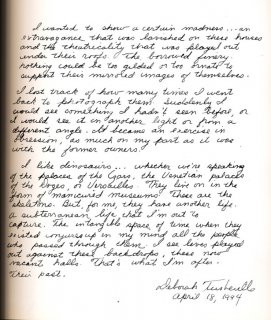 I wanted to show a certain madness...an
extravagance that was lavished on these houses
and the theatricality that was played out
under their roofs. The borrowed finery,
nothing could be too gilded or too ornate to
support their mirrored images of themselves.
I lost track of how many times I went
back to photograph them. Suddenly I
would see something I hadn't seen before, or
I would see it in another light or from a
different angle. It became an exercise in
obsession, as much on my part as it was
with the former owners.
I like dinosaurs... whether we're speaking
of the palaces of the Czars, the Venetian palaces
of the Doges, or Versailles. They live on in the
form of manicured museums. These are the
skeletons. But, for me, they have another life.
A subterranean life that I'm out to
capture. The intangible space of time when they
existed conjures up in my mind all the people
who passed through them. I see lives played
out against these backdrops, these now
vacant halls. That's what I'm after.
Their past.
Deborah Turbeville
April 18, 1994